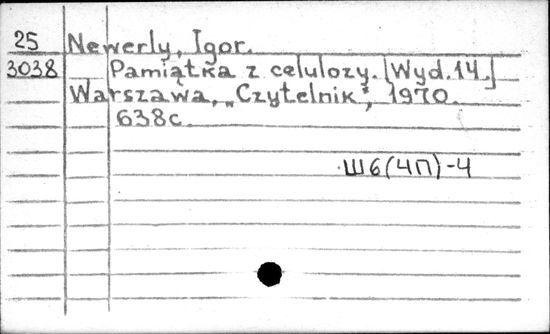 25 Newerly, Igor.
3038 Pamiątka z celulozy. [Wyd. 14.]
Warszawa, „Czytelnik”, 1970.
638с.
Ш6(4П)-4